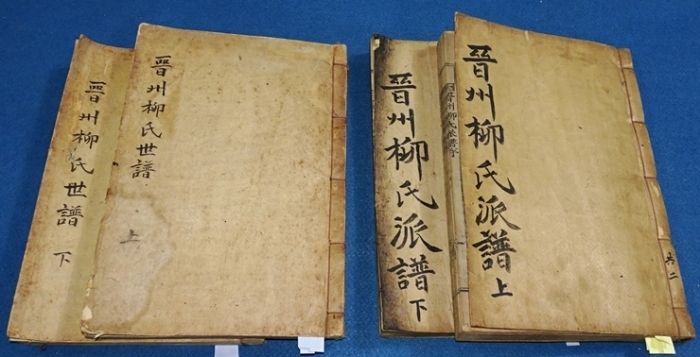 晉州柳氏世譜
下
晉州柳氏世譜
上
晉州柳氏派譜
下
晉州柳氏派譜
上
共二